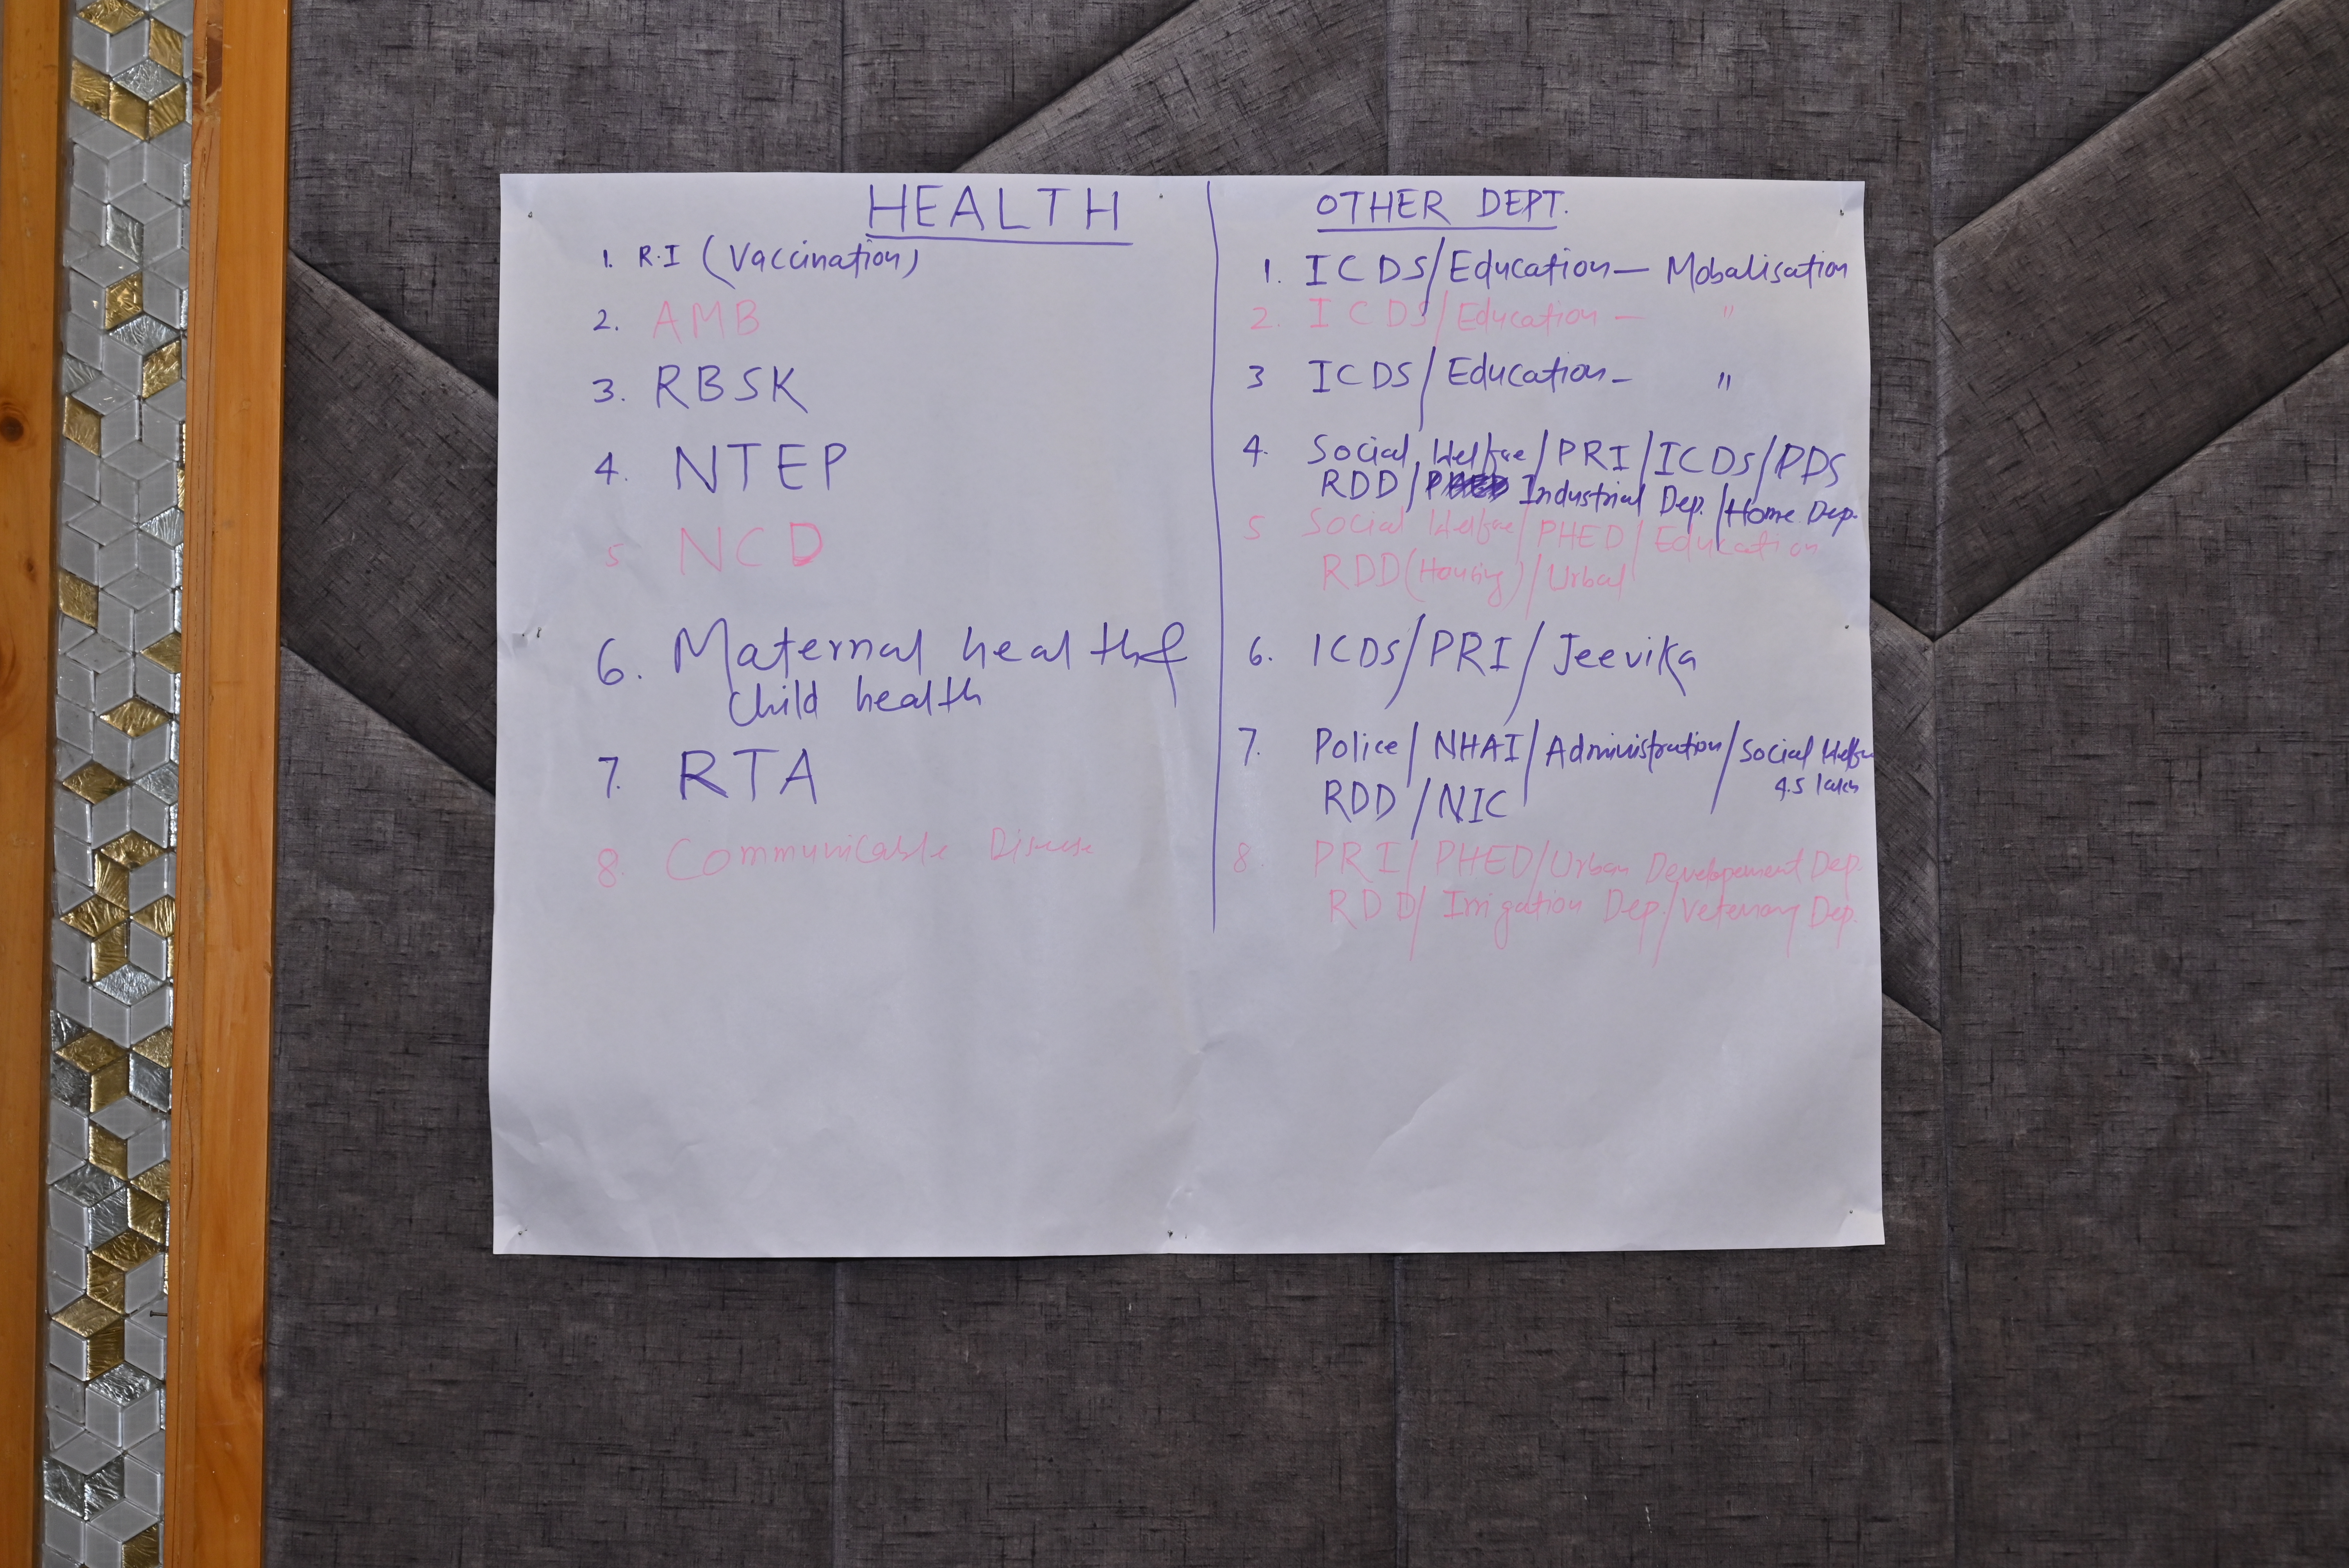 HEALTH
1. R.I (Vaccination)
2. AMB
3. RBSK
4. NTEP
5 NCD
6. Maternal health &
child health
7. RTA
8. Communicable Disease
OTHER DEPT.
1. ICDS/Education — Mobalisation
2. ICDS/Education — "
3 ICDS/Education - "
4. Social Welfare/PRI/ICDS/PDS
RDD/ Industrial Dep./Home Dep.
5 Social Welfare/PHED/Education
RDD(Housing)/Urbal
6. ICDS/PRI/Jeevika
7. Police/NHAI/Administration/Social Welfare
4.5 lakh
RDD/NIC
8 PRI/PHED/Urban Developement Dep.
RDD/Irrigation Dep./Veternary Dep.